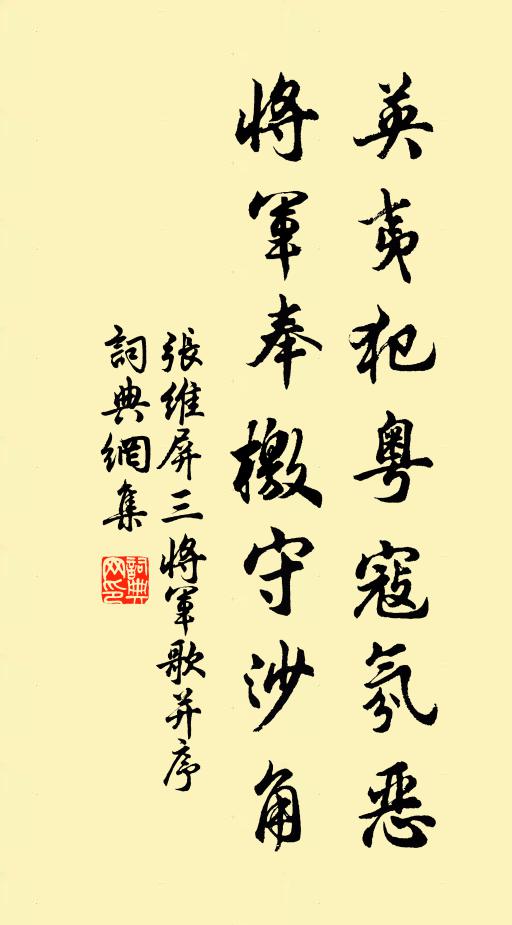 英夷犯粵寇氛惡
將軍奉檄守沙角
張維屏三將軍歌并序
詞典網集
詞典
网印